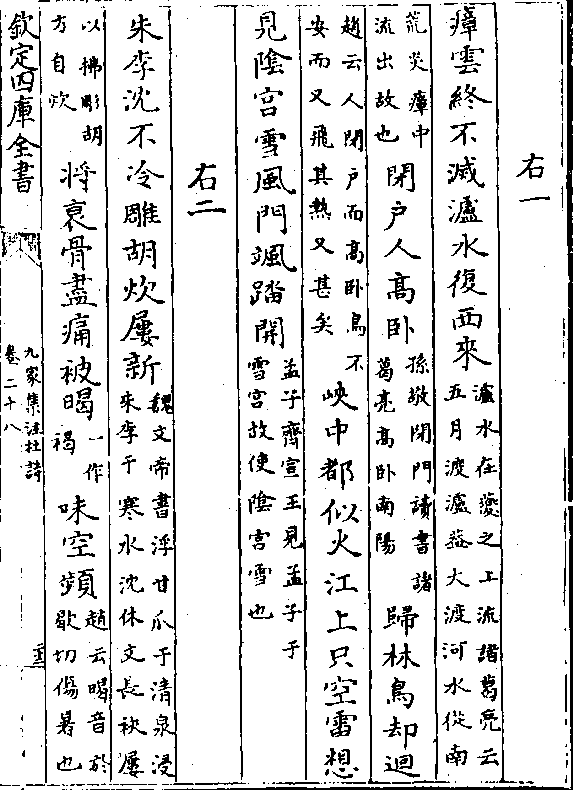 右一
瘴雲終不滅瀘水復西來瀘水在䕫之上流諸葛亮云五月渡瀘葢大渡河水從南
荒炎瘴中流出故也閉户人髙卧孫敬閉門讀書諸葛亮髙卧南陽歸林鳥却迴
趙云人閉户而髙卧鳥不安而又飛其熱又甚矣峽中都似火江上只空雷想
見隂宫雪風門颯踏開孟子齊宣王見孟子于雪宫故使隂宫雪也
右二
朱李沈不冷雕胡炊屢新魏文帝書浮甘瓜于清泉浸朱李于寒水沈休文長袂屢
以拂彫胡方自炊將衰骨盡痛被暍一作褐味空頻趙云暍音於歇切傷暑也
欽定四庫全書
九家集注杜詩
卷二十八